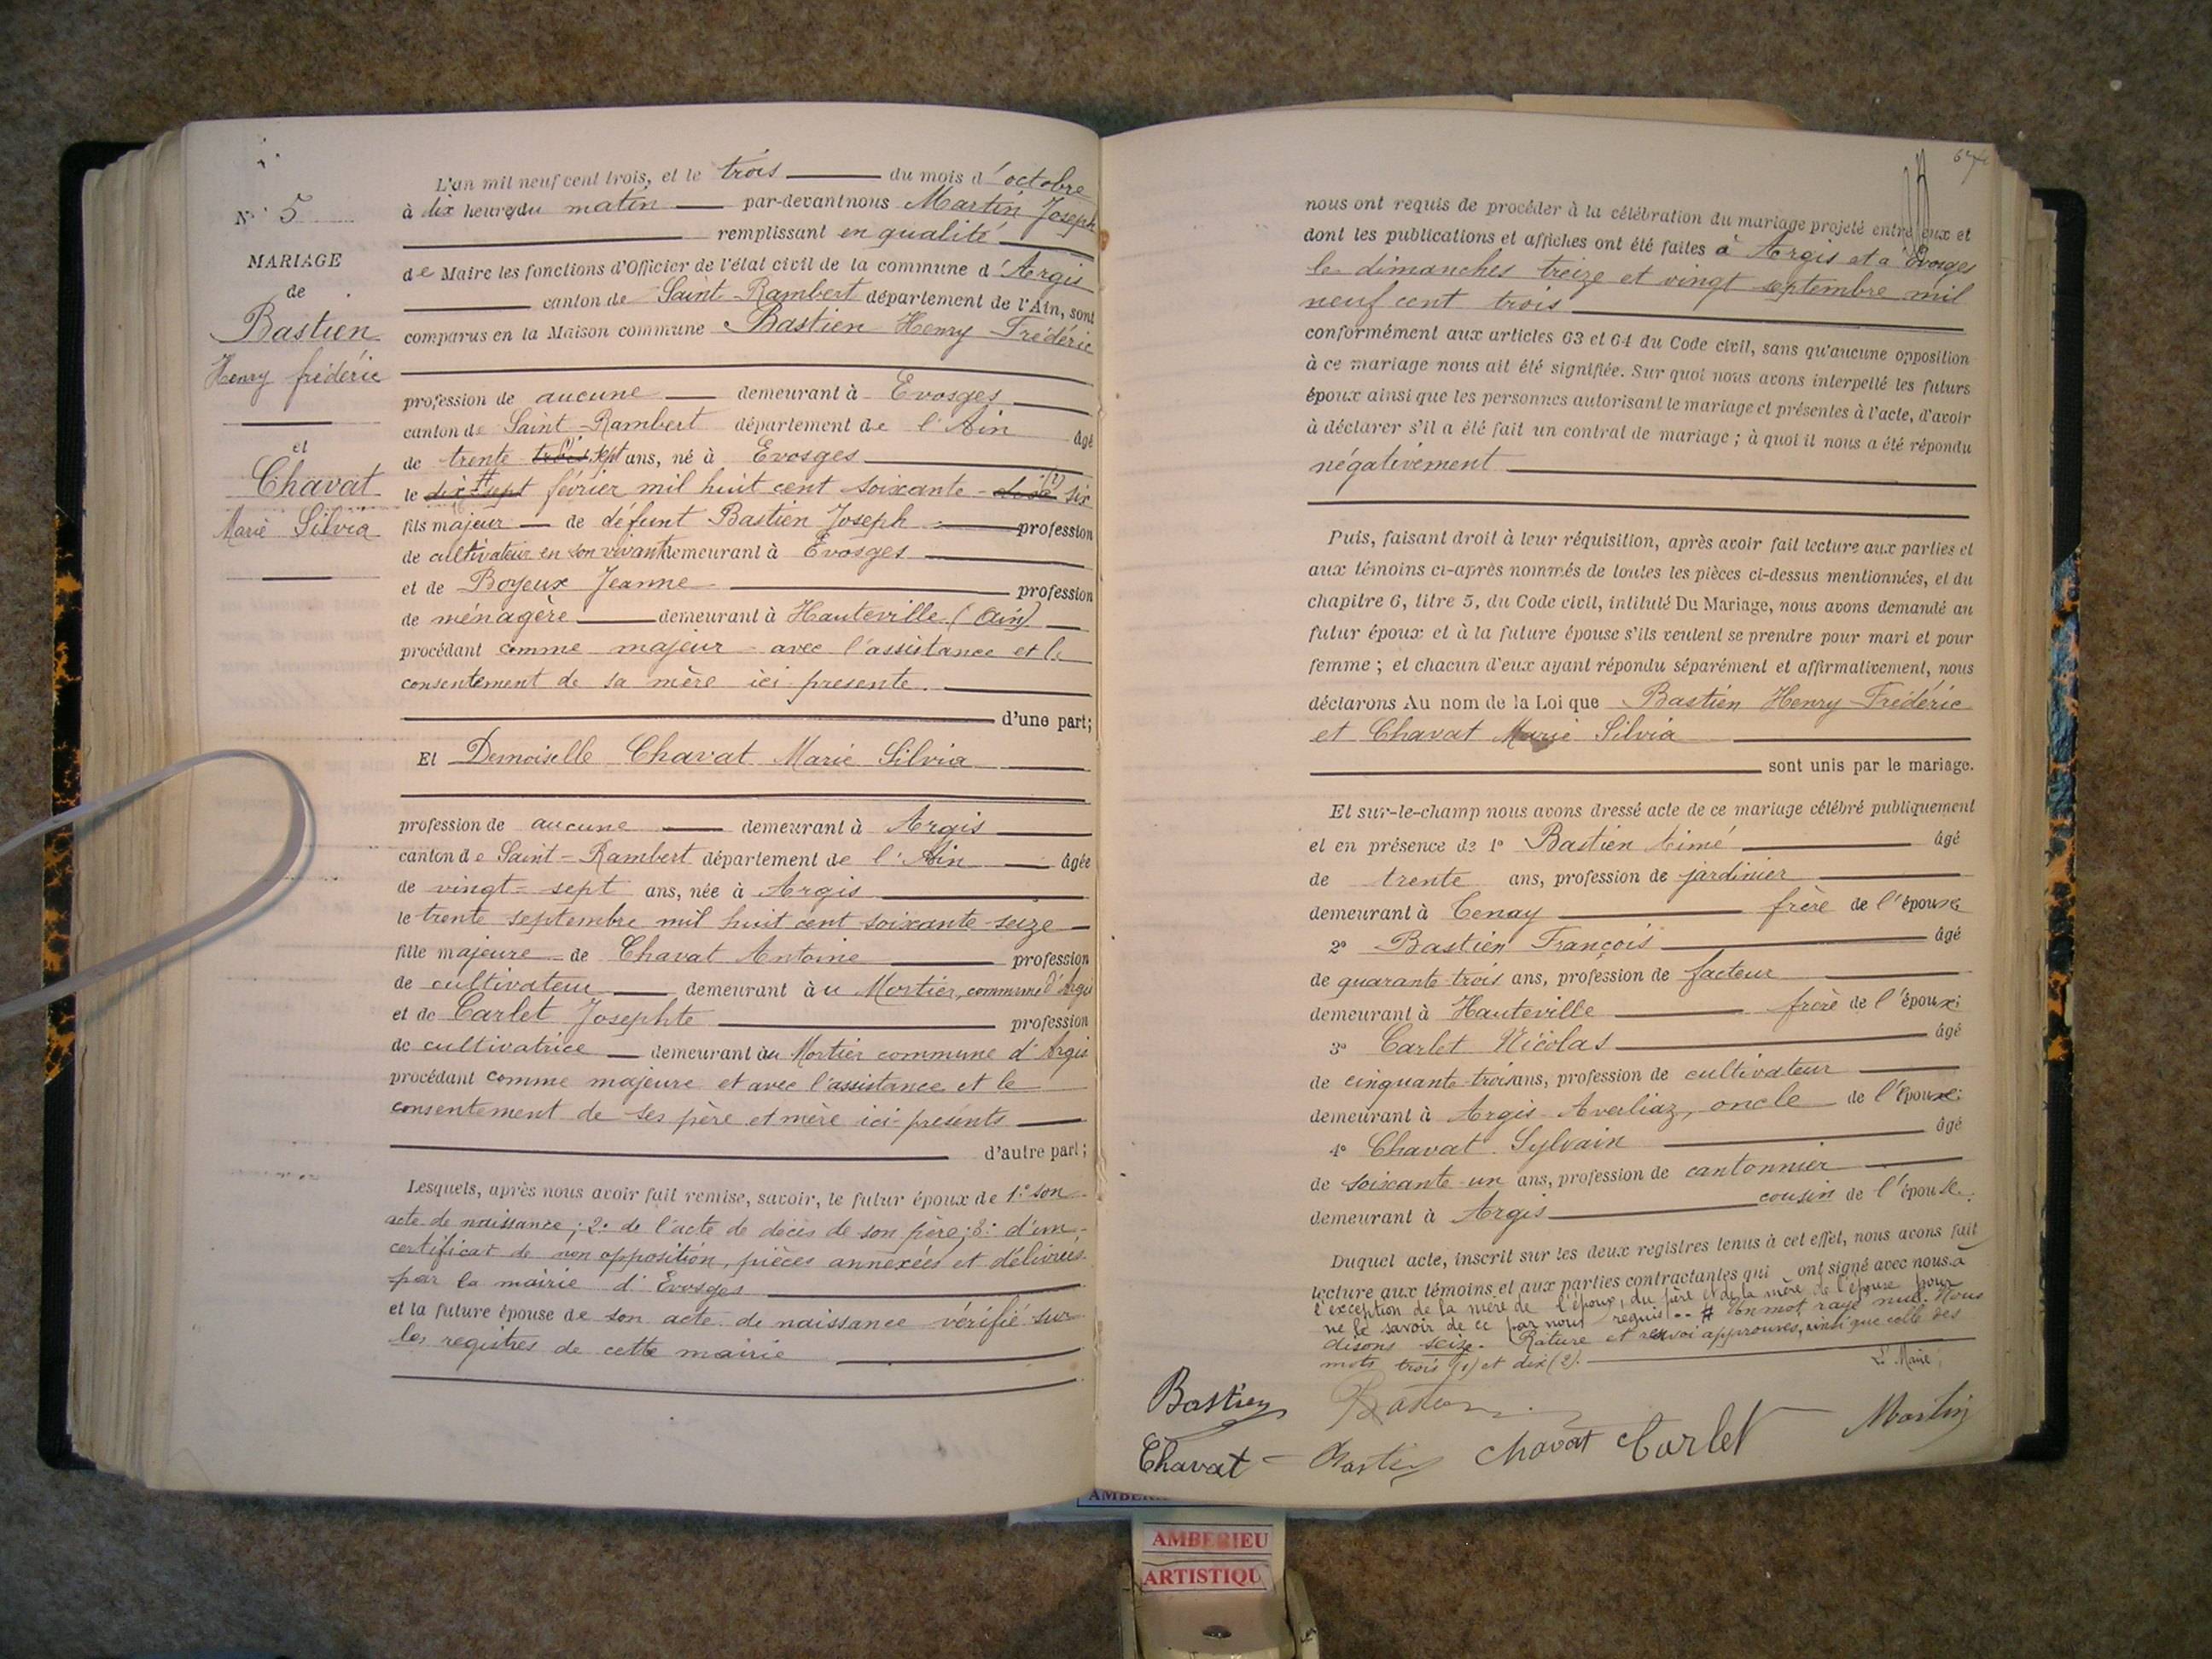 N° 5
MARIAGE
de
Bastien
Henry frédéric
et
Chavat
Marie Silvia
L'an mil neuf cent trois, et le trois du mois d'octobre
à dix heures du matin par-devant nous Martin Joseph
remplissant en qualité
de Maire les fonctions d'Officier de l'état civil de la commune d'Argis
canton de Saint-Rambert département de l'Ain, sont
comparus en la Maison commune Bastien Henry Frédéric
profession de aucune demeurant à Evosges
canton de Saint-Rambert département de l'Ain âgé
de trente trois (1) sept ans, né à Evosges
le dix-sept # février mil huit cent soixante- (2) six
fils majeur de défunt Bastien Joseph profession
de cultivateur en son vivant demeurant à Evosges
et de Boyeux Jeanne profession
de ménagère demeurant à Hauteville (Ain)
procédant comme majeur avec l'assistance et le
consentement de sa mère ici presente.
d'une part;
Et Demoiselle Chavat Marie Silvia
profession de aucune demeurant à Argis
canton de Saint-Rambert département de l'Ain âgée
de vingt-sept ans, née à Argis
le trente septembre mil huit cent soixante-seize
fille majeure de Chavat Antoine profession
de cultivateur demeurant au Mortier, commune d'Argis
et de Carlet Josephte profession
de cultivatrice demeurant au Mortier commune d'Argis
procédant comme majeure et avec l'assistance et le
consentement de ses père et mère ici présents
d'autre part;
Lesquels, après nous avoir fait remise, savoir, le futur époux de 1° son
acte de naissance; 2° de l'acte de décès de son père; 3° d'un
certificat de non opposition, pièces annexées et délivrées
par la mairie d'Evosges
et la future épouse de son acte de naissance vérifié sur
les registres de cette mairie
67
nous ont requis de procéder à la célébration du mariage projeté entre eux et
dont les publications et affiches ont été faites à Argis et à Evosges
le dimanches treize et vingt septembre mil
neuf cent trois
conformément aux articles 63 et 64 du Code civil, sans qu'aucune opposition
à ce mariage nous ait été signifiée. Sur quoi nous avons interpellé les futurs
époux ainsi que les personnes autorisant le mariage et présentes à l'acte, d'avoir
à déclarer s'il a été fait un contrat de mariage; à quoi il nous a été répondu
négativement
Puis, faisant droit à leur réquisition, après avoir fait lecture aux parties et
aux témoins ci-après nommés de toutes les pièces ci-dessus mentionnées, et du
chapitre 6, titre 5, du Code civil, intitulé Du Mariage, nous avons demandé au
futur époux et à la future épouse s'ils veulent se prendre pour mari et pour
femme; et chacun d'eux ayant répondu séparément et affirmativement, nous
déclarons Au nom de la Loi que Bastien Henry Frédéric
et Chavat Marie Silvia
sont unis par le mariage.
Et sur-le-champ nous avons dressé acte de ce mariage célébré publiquement
et en présence de 1° Bastien Aimé âgé
de trente ans, profession de jardinier
demeurant à Tenay frère de l'époux
2° Bastien François âgé
de quarante-trois ans, profession de facteur
demeurant à Hauteville frère de l'époux
3° Carlet Nicolas âgé
de cinquante-trois ans, profession de cultivateur
demeurant à Argis-Averliaz, oncle de l'épouse
4° Chavat Sylvain âgé
de soixante-un ans, profession de cantonnier
demeurant à Argis cousin de l'épouse.
Duquel acte, inscrit sur les deux registres tenus à cet effet, nous avons fait
lecture aux témoins et aux parties contractantes qui ont signé avec nous à
l'exception de la mère de l'époux, du père et de la mère de l'épouse pour
ne le savoir de ce par nous requis.. # Un mot rayé nul. Nous
disons seize. Rature et renvoi approuvés, ainsi que celle des
mots trois (1) et dix (2).
Le Maire,
Bastien Bastien Martin
Chavat Bastien Chavat Carlet
AMBERIEU
ARTISTIQU